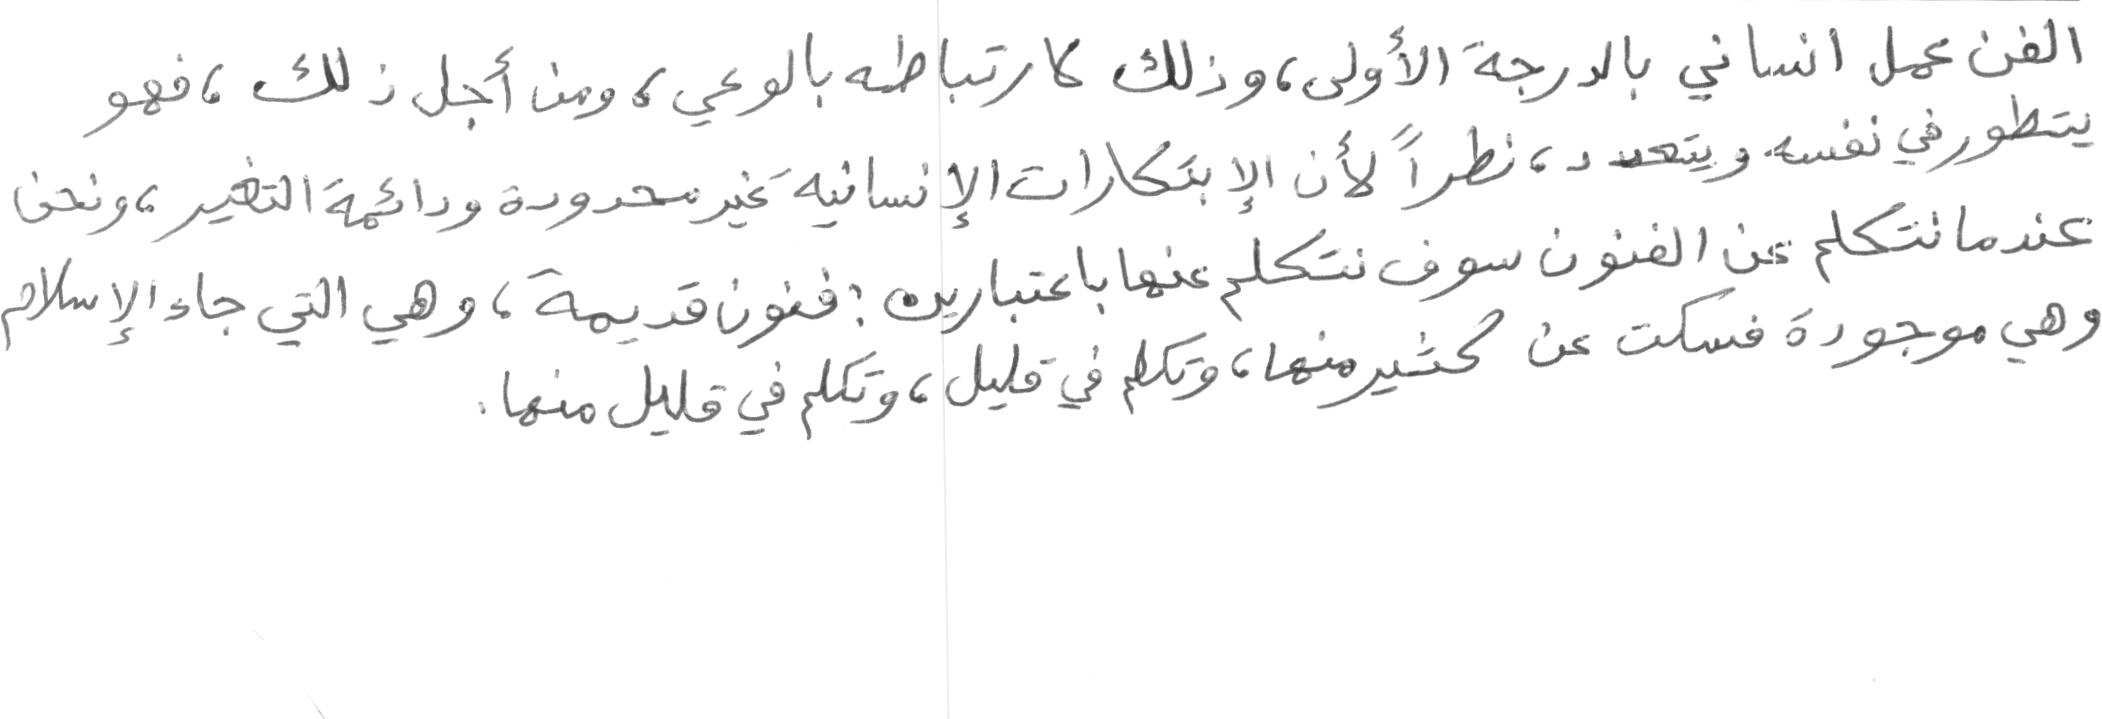 الفن عمل انساني بالدرجة الأولى، وذلك كارتباطه بالوعي، ومن أجل ذلك، فهو
يتطور في نفسه ويتعدد، نظراً لأن الإبتكارات الإنسانيه غير محدودة ودائمة التغير، ونحن
عندما نتكلم عن الفنون سوف نتكلم عنها باعتبارين: فنون قديمة، وهي التي جاء الإسلام
وهي موجودة فسكت عن كثير منها، وتكلم في قليل، وتكلم في قليل منها.